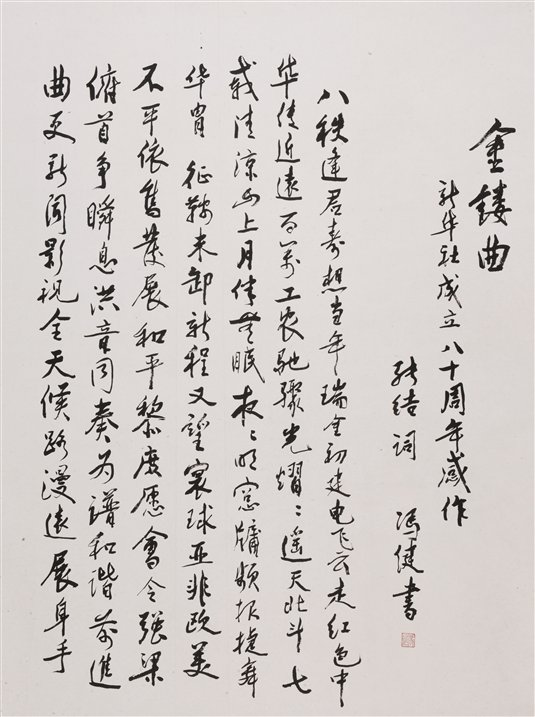 金缕曲
新华社成立八十周年感作
张结词 冯健书
八秩逢君寿想当年瑞金初建电飞云走红色中
华传近远百万工农驰骤光熠〻遥天北斗七
载清凉山上月伴無眠夜〻明窗牖频报捷舞
华胄 征鞍未卸新程又望寰球亚非欧美
不平依旧发展和平黎庶愿会令强梁
俯首争瞬息洪音同奏为谱和谐前进
曲更新闻影视全天候路漫远展身手